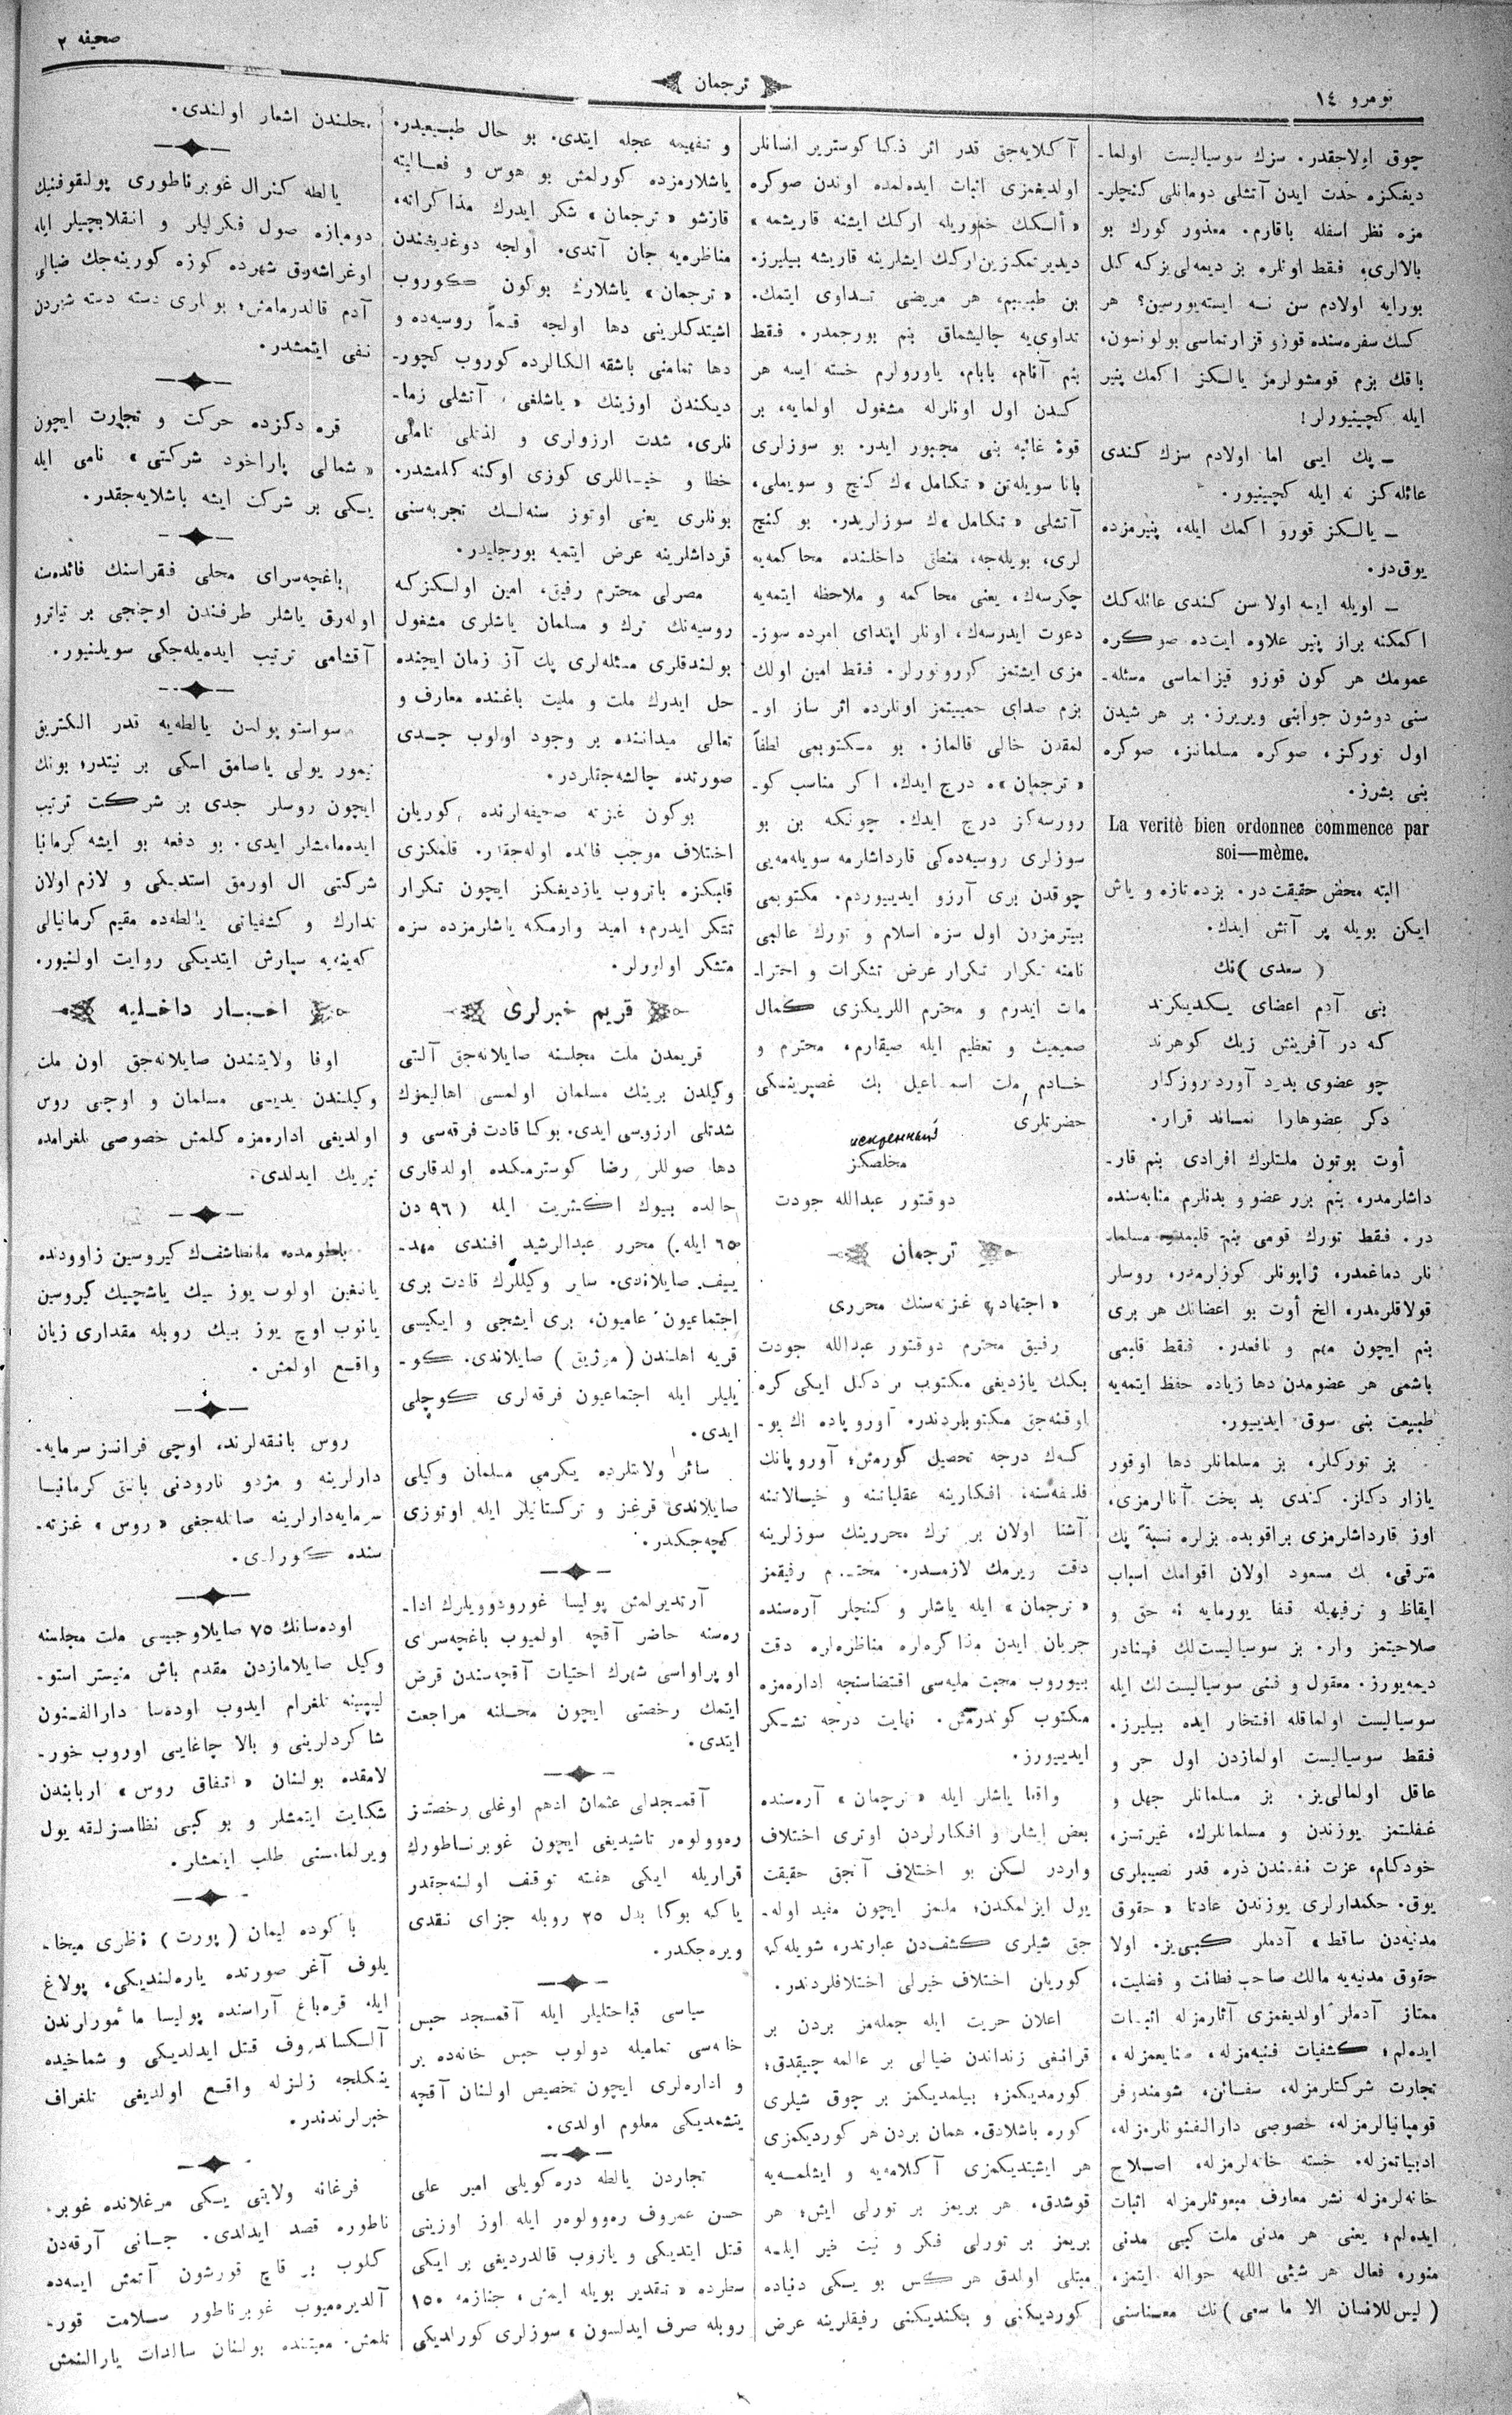 نومرو ١٤
ترجمان
صحيفه ٢
چوق اولاجقدر. سزك سوسياليست اولما-
ديغكزه حدت ايدن آتشلى دومانلى كنجلر-
مزه نظر اسفله باقارم. معذور كورك بو
بالالرى، فقط اونلره بز ديمه‌لى‌يز كه كل
بورايه اولادم سن نه ايسته‌يورسين؟ هر
كسك سفره‌سنده قوزو قزارتماسى بولونسون،
باقك بزم قومشولرمز يالكز اكمك پنير
ايله كچينيورلر!
ــ پك ايى اما اولادم سزك كندى
عائله‌كز نه ايله كچينيور.
ــ يالكز قورو اكمك ايله، پنيرمزده
يوق‌در.
ــ اويله ايسه اولا سن كندى عائله‌كك
اكمكنه براز پنير علاوه ايت‌ده صوكره
عمومك هر كون قوزو قيزانماسى مسئله-
سنى دوشون جوابنى ويريرز. بر هر شيدن
اول توركز، صوكره مسلمانز، صوكره
بنى بشرز.
La veritè bien ordonnee commence par
soi—mème.
البته محض حقيقت در. بزده تازه و ياش
ايكن بويله پر آتش ايدك.
( سعدى ) نك
بنى آدم اعضاى يكديكرند
كه در آفرينش زيك كوهرند
چو عضوى بدرد آورد روزكار
دكر عضوهارا نماند قرار.
أوت بوتون ملتلرك افرادى بنم قار-
داشلرمدر، بنم برر عضو و بدنلرم مثابه‌سنده
در. فقط تورك قومى بنم قلبمدر مسلما-
نلر دماغمدر، ژاپونلر كوزلرمدر، روسلر
قولاقلرمدر، الخ أوت بو اعضانك هر برى
بنم ايچون مهم و نافعدر. فقط قلبمى
باشمى هر عضومدن دها زياده حفظ ايتمه‌يه
طبيعت بنى سوق ايدييور.
بز توركلر، بز مسلمانلر دها اوقور
يازار دكلز. كندى بد بخت آنالرمزى،
اوز قارداشلرمزى براقوبده بزلره نسبة پك
مترقى، پك مسعود اولان اقوامك اسباب
ايقاظ و ترفيهيله قفا يورمايه نه حق و
صلاحيتمز وار. بز سوسياليست‌لك فنادر
ديمه‌يورز. معقول و فنى سوسياليست‌لك ايله
سوسياليست اولماقله افتخار ايده بيليرز.
فقط سوسياليست اولمازدن اول حر و
عاقل اولمالى‌يز. بز مسلمانلر جهل و
غفلتمز يوزندن و مسلمانلرك، غيرتسز،
خودكام، عزت نفسندن ذره قدر نصيبلرى
يوق. حكمدارلرى يوزندن عادتا « حقوق
مدنيه‌دن ساقط » آدملر كبى‌يز. اولا
حقوق مدنيه‌يه مالك صاحب فطانت و فضليت،
ممتاز آدملر اولديغمزى آثارمزله اثبات
ايده‌لم؛ كشفيات فنيه‌مزله، صنايعمزله،
تجارت شركتلرمزله، سفائن، شومندوفر
قومپانيالرمزله، خصوصى دارالفنونلرمزله،
ادبياتمزله. خسته خانه‌لرمزله، اصلاح
خانه‌لرمزله نشر معارف مبعوثلرمزله اثبات
ايده‌لم؛ يعنى هر مدنى ملت كبى مدنى
منور، فعال هر شيئى اللهه حواله ايتمز،
( ليس للانسان الا ما سعى ) نك معناسنى
آكلايه‌جق قدر اثر ذكا كوسترير انسانلر
اولديغمزى اثبات ايده‌لمده اوندن صوكره
« ألسكك خموريله اركك ايشنه قاريشمه »
ديديرتمكزين اركك ايشلرينه قاريشه بيليرز.
بن طبيبم، هر مريضى تداوى ايتمك.
تداوى‌يه چاليشماق بنم بورجمدر. فقط
بنم آنام، بابام، ياورولرم خسته ايسه هر
كسدن اول اونلرله مشغول اولمايه، بر
قوۀ غائبه بنى مجبور ايدر. بو سوزلرى
بانا سويله‌تن « تكامل »ك كنج و سويملى،
آتشلى « تكامل »ك سوزلريدر. بو كنج
لرى، بويله‌جه، منطق داخلنده محاكمه‌يه
چكرسه‌ك، يعنى محاكمه و ملاحظه ايتمه‌يه
دعوت ايدرسه‌ك، اونلر ابتداى امرده سوز-
مزى ايشتمز كورونورلر. فقط امين اولك
بزم صداى حميتمز اونلرده اثر ساز او-
لمقدن خالى قالماز. بو مكتوبمى لطفاً
« ترجمان »ه درج ايدك. اكر مناسب كو-
رورسه‌كز درج ايدك. چونكه بن بو
سوزلرى روسيه‌ده‌كى قارداشلرمه سويله‌مه‌يى
چوقدن برى آرزو ايدييوردم. مكتوبمى
بيترمزدن اول سزه اسلام و تورك عالمى
نامنه تكرار تكرار عرض تشكرات و احترا-
مات ايدرم و محترم اللريكزى كمال
صميميت و تعظيم ايله صيقارم، محترم و
خادم ملت اسماعيل بك غصپرينسكى
حضرتلرى
искренный
مخلصكز
دوقتور عبدالله جودت
ترجمان
« اجتهاد » غزته‌سنك محررى
رفيق محترم دوقتور عبدالله جودت
بكك يازديغى مكتوب بر دكل ايكى كره
اوقنه‌جق مكتوبلردندر. آوروپاده اك يو-
كسك درجه تحصيل كورمش؛ آوروپانك
فلسفه‌سنه، افكارينه عقلياتنه و خيالاتنه
آشنا اولان بر ترك محررينك سوزلرينه
دقت ويرمك لازمدر. محترم رفيقمز
« ترجمان » ايله ياشلر و كنجلر آره‌سنده
جريان ايدن مذاكره‌لره مناظره‌لره دقت
بيوروب محبت مليه‌سى اقتضاسنجه اداره‌مزه
مكتوب كوندرمش. نهايت درجه تشكر
ايدييورز.
واقعا ياشلر ايله « ترجمان » آره‌سنده
بعض ايشلر و افكارلردن اوترى اختلاف
واردر لكن بو اختلاف آنجق حقيقت
يول ايزلمكدن؛ ملتمز ايچون مفيد اوله-
جق شيلرى كشف‌دن عبارتدر، شويله‌كه
كوريان اختلاف خيرلى اختلافلردندر.
اعلان حريت ايله جمله‌مز بردن بر
قرانغى زنداندن ضيالى بر عالمه چيقدق؛
كورمديكمز؛ بيلمديكمز بر چوق شيلرى
كوره باشلادق. همان بردن هر كورديكمزى
هر ايشيتديكمزى آكلامه‌يه و ايشلمه‌يه
قوشدق، هر بريمز بر تورلى ايش؛ هر
بريمز بر تورلى فكر و نيت خير ايله
مبتلى اولدق هر كس بو يكى دنياده
كورديكنى و بكنديكنى رفيقلرينه عرض
و تفهيمه عجله ايتدى. بو حال طبيعيدر.
ياشلارمزده كورلمش بو هوس و فعاليته
قارشو « ترجمان » شكر ايدرك مذاكرانه،
مناظره‌يه جان آتدى. اولجه دوغديغندن
« ترجمان » ياشلارك بوكون كوروب
اشيتدكلرينى دها اولجه قسماً روسيه‌ده و
دها تمامنى باشقه الكالرده كوروب كچور-
ديكندن اوزينك « ياشلغى »، آتشلى زما-
نلرى، شدت ارزولرى و لذتلى تاملى
خطا و خياللرى كوزى اوكنه كلمشدر.
بونلرى يعنى اوتوز سنه‌لك تجربه‌سنى
قرداشلرينه عرض ايتميه بورجليدر.
مصرلى محترم رفيق، امين اولكزكه
روسيه‌نك ترك و مسلمان ياشلرى مشغول
بولندقلرى مسئله‌لرى پك آز زمان ايچنده
حل ايدرك ملت و مليت باغنده معارف و
تعالى ميداننده بر وجود اولوب جدى
صورتده چالشه‌جقلردر.
بوكون غزته صحيفه‌لرنده كوريان
اختلاف موجب فائده اوله‌جقدر. قلمكزى
قلبكزه باتروب يازديغكز ايچون تكرار
تشكر ايدرم؛ اميد وارمكه ياشلارمزده سزه
متشكر اولورلر.
قريم خبرلرى
قريمدن ملت مجلسنه صايلانه‌جق آلتى
وكيلدن برينك مسلمان اولمسى اهاليمزك
شدتلى ارزوسى ايدى. بوكا قادت فرقه‌سى و
دها صوللر رضا كوسترمكده اولدقلرى
حالده بيوك اكثريت ايله ( ٩٦ دن
٦٥ ايله ) محرر عبدالرشيد افندى مهد-
ييف صايلاندى. سائر وكيللرك قادت برى
اجتماعيون عاميون، برى ايشجى و ايكيسى
قريه اهلندن ( موژيق ) صايلاندى. كو-
يليلر ايله اجتماعيون فرقه‌لرى كوچلى
ايدى.
سائر ولايتلرده يكرمى مسلمان وكيلى
صايلاندى قرغز و تركستانيلر ايله اوتوزى
كچه‌جكدر.
آرتديرلمش پوليسا غورودوويلرك ادا-
ره‌سنه حاضر آقچه اولميوب باغچه‌سراى
اوپراواسى شهرك احتيات آقچه‌سندن قرض
ايتمك رخصتى ايچون محلنه مراجعت
ايتدى.
آقمسجدلى عثمان ادهم اوغلى رخصتسز
ره‌وولوه‌ر تاشيديغى ايچون غوبرناطورك
قراريله ايكى هفته توقف اولنه‌جقدر
ياكه بوكا بدل ٢٥ روبله جزاى نقدى
ويره‌جكدر.
سياسى قباحتليلر ايله آقمسجد حبس
خانه‌سى تماميله دولوب حبس خانه‌ده بر
و اداره‌لرى ايچون تخصيص اولنان آقچه
يتشمديكى معلوم اولدى.
تجاردن يالطه دره‌كويلى امير على
حسن عمروف ره‌وولوه‌ر ايله اوز اوزينى
قتل ايتديكى و يازوب قالدرديغى بر ايكى
سطرده « تقدير بويله ايمش، جنازمه ١٥٠
روبله صرف ايدلسون » سوزلرى كورلديكى
محلندن اشعار اولندى.
يالطه كنرال غوبرناطورى
دومبازه صول فكرليلر و انقلابچيلر ايله
اوغراشه‌رق شهرده كوزه كورينه‌جك ضيالى
آدم قالدرمامش؛ بونلرى دسته دسته شهردن
نفى ايتمشدر.
قره دكزده حركت و تجارت ايچون
« شمالى پاراخود شركتى » نامى ايله
يكى بر شركت ايشه باشلايه‌جقدر.
باغچه‌سراى محلى فقراسنك فائده‌سنه
اوله‌رق ياشلر طرفندن اوچنجى بر تياترو
آقشامى ترتيب ايده‌يله‌جكى سويلنيور.
سواستوپولدن يالطه‌يه قدر الكتريق
تيمور يولى ياصامق اسكى بر نيتدر؛ بونك
ايچون روسلر جدى بر شركت ترتيب
ايده‌مامشلر ايدى. بو دفعه بو ايشه كرمانيا
شركتى ال اورمق استديكى و لازم اولان
تدارك و كشفياتى يالطه‌ده مقيم كرمانيالى
سپارش ايتديكى روايت اولنيور.
اخبار داخليه
اوفا ولايتندن صايلانه‌جق اون ملت
وكيلندن يديسى مسلمان و اوچى روس
اولديغى اداره‌مزه كلمش خصوصى تلغرامده
تبريك ايدلدى.
باطومده مانطاشف‌ك كيروسين زاوودنده
يانغين اولوب يوز بيك ياشچيك كيروسين
يانوب اوچ يوز بيك روبله مقدارى زيان
واقع اولمش.
روس بانقه‌لرند، اوچى فرانسز سرمايه-
دارلرينه و مژدو نارودنى بانق كرمانيا
سرمايه‌دارلرينه صاتله‌جغى « روس » غزته-
سنده كورلدى.
اوده‌سانك ٧٥ صايلاوجيسى ملت مجلسنه
وكيل صايلامازدن مقدم باش مينستر استو-
ليپينه تلغرام ايدوب اوده‌سا دارالفنون
شاكردلرينى و بالا چاغايى اوروب خور-
لامقده بولنان « اتفاق روس » اربابندن
شكايت ايتمشلر و بو كبى نظامسزلقه يول
ويرلماسنى طلب ايتمشلر.
باكوده ليمان ( پورت ) ناظرى ميخا-
يلوف آغر صورتده ياره‌لنديكى، پولاغ
ايله قره‌باغ آراسنده پوليسا مأمورلرندن
آلكساندروف قتل ايدلديكى و شماخيده
يتكلجه زلزله واقع اولديغى تلغراف
خبرلرندندر.
فرغانه ولايتى يكى مرغلانده غوبر-
ناطوره قصد ايدلدى. جانى آرقه‌دن
كلوب بر قاچ قورشون آتمش ايسه‌ده
آلديره‌ميوب غوبرناطور سلامت قور-
تلمش. معيتنده بولنان سالدات يارالنمش